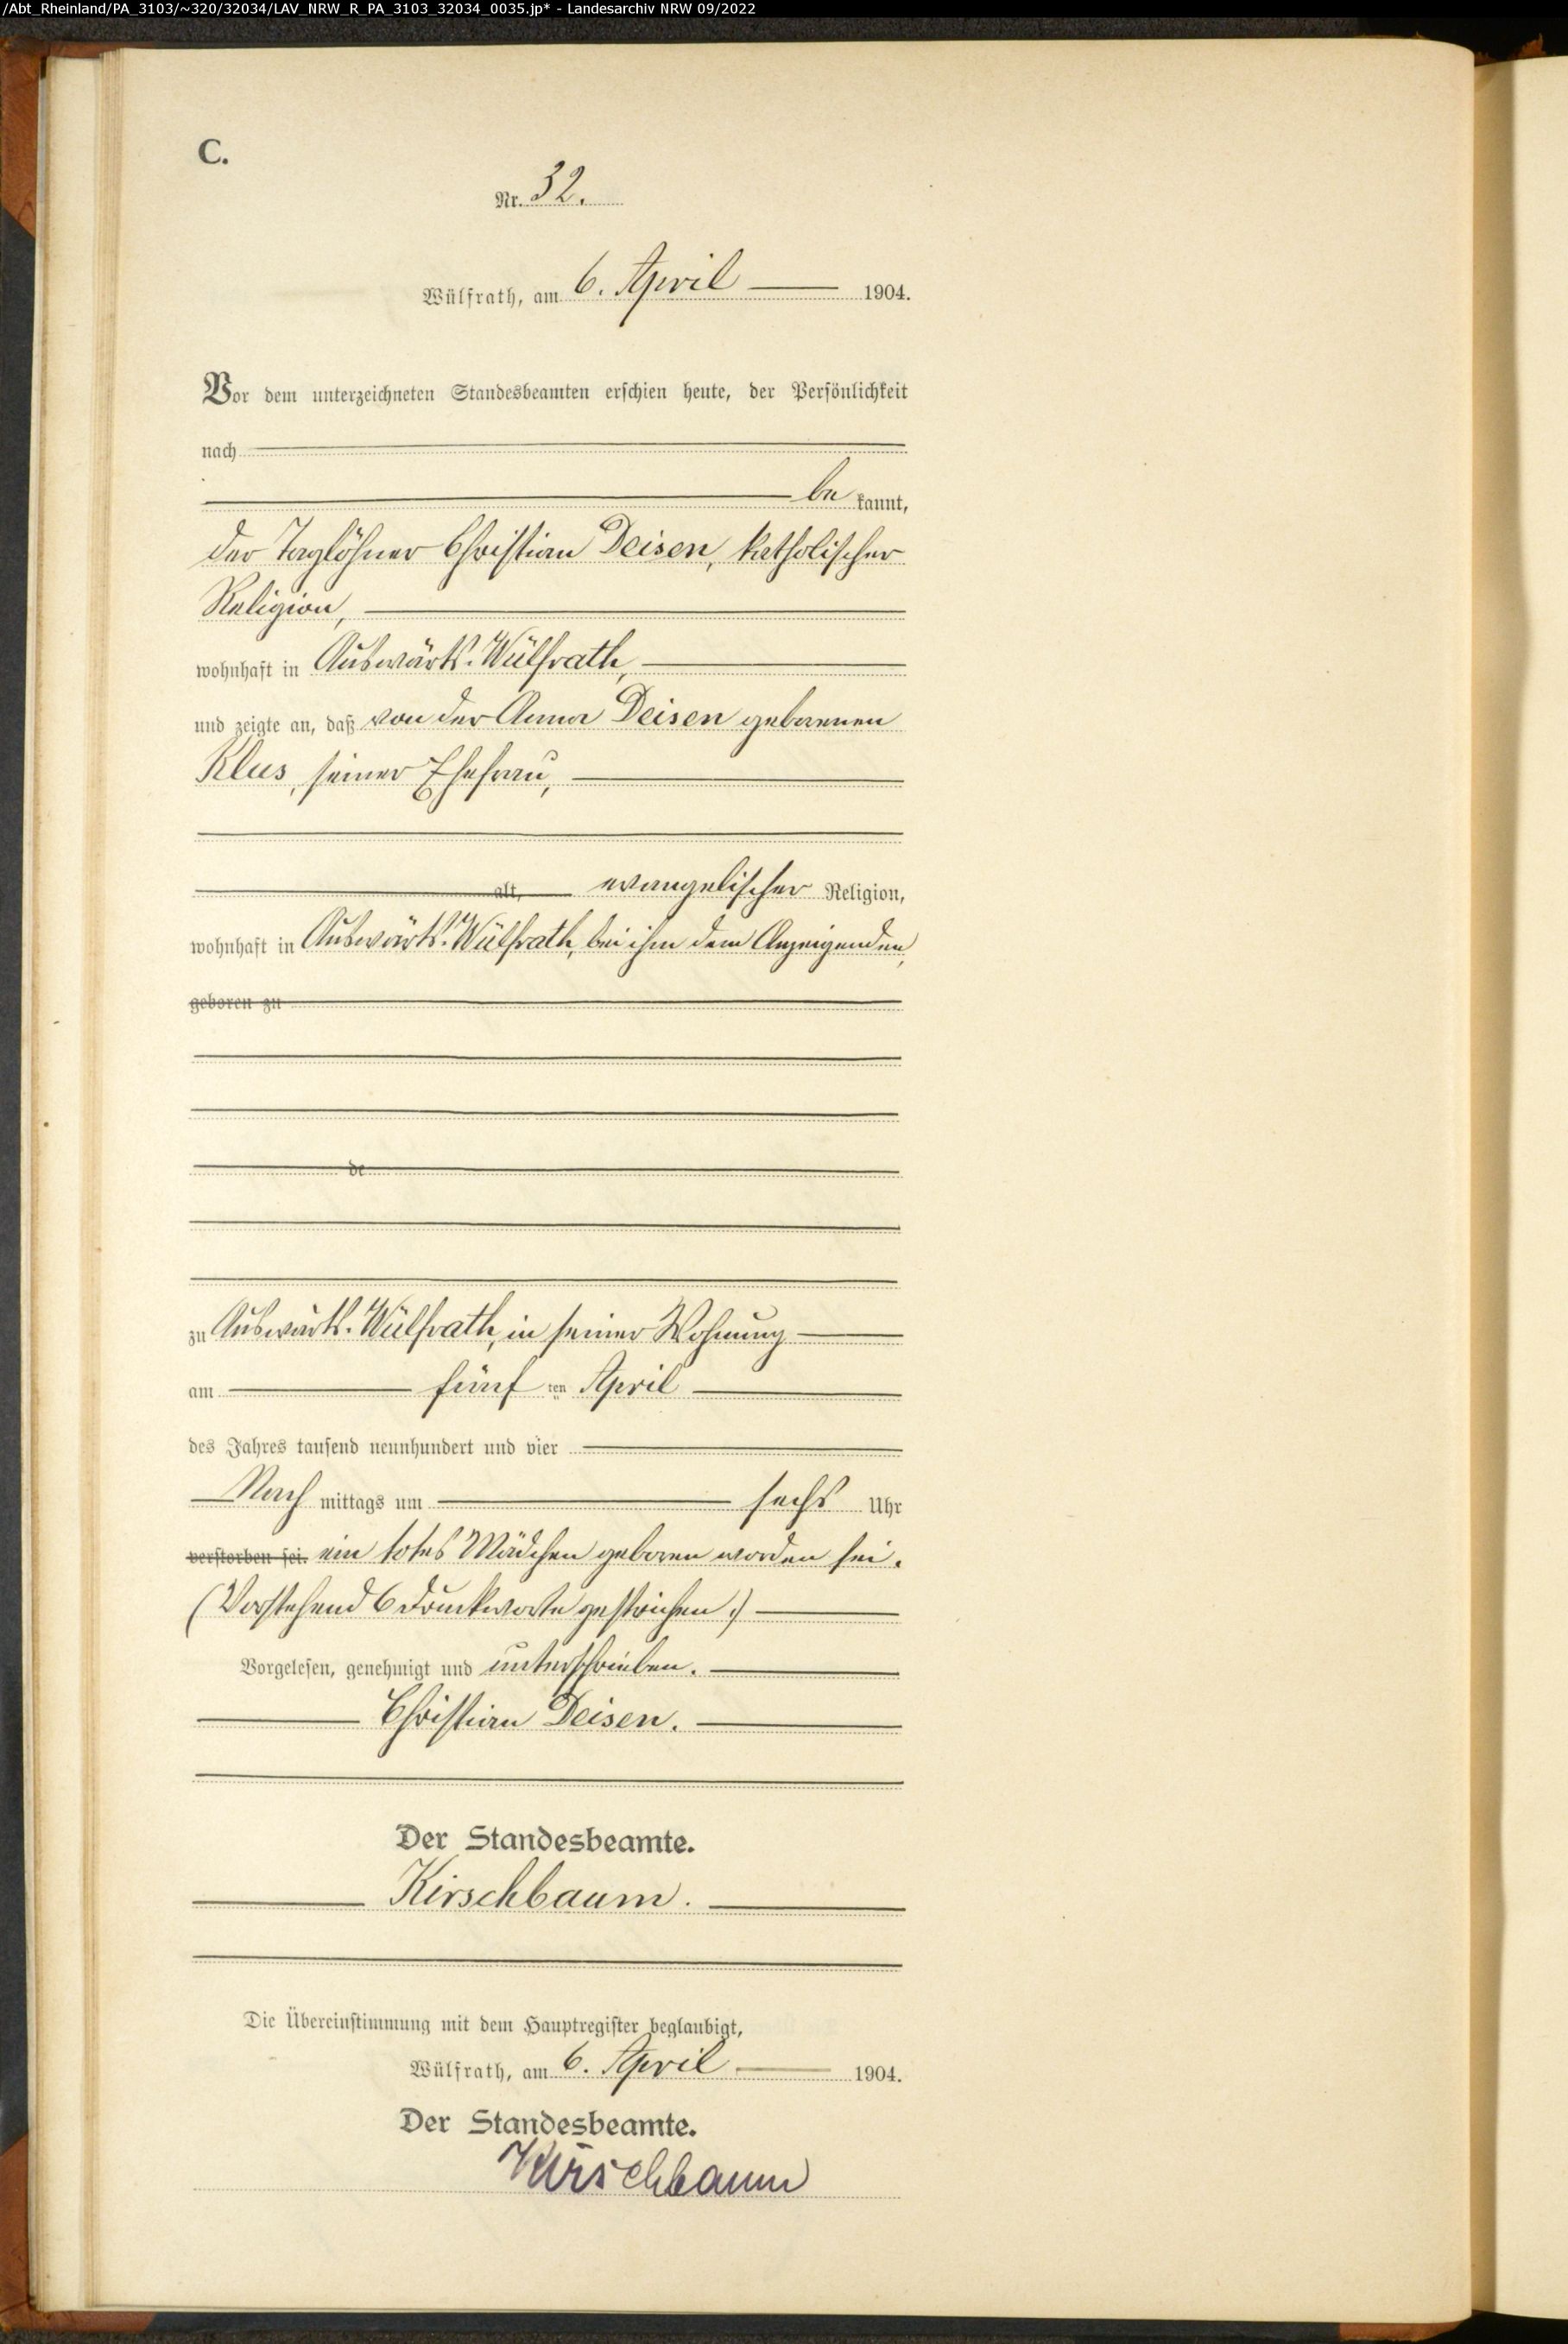 /Abt_Rheinland/PA_3103/~320/32034/LAV_NRW_R_PA_3103_32034_0035.jp* - Landesarchiv NRW 09/2022
C.
Nr. 32.
Wülfrath, am 6. April 1904.
Vor dem unterzeichneten Standesbeamten erschien heute, der Persönlichkeit
nach
be kannt,
der Taglöhner Christian Deisen, katholischer
Religion,
wohnhaft in Auswärts-Wülfrath,
und zeigte an, daß von der Anna Deisen geborenen
Klus, seiner Ehefrau,
alt, evangelischer Religion,
wohnhaft in Auswärts-Wülfrath, bei ihm dem Anzeigenden,
geboren zu
de
zu Auswärts-Wülfrath, in seiner Wohnung
am fünf ten April
des Jahres tausend neunhundert und vier
Nach mittags um sechs Uhr
verstorben sei. ein totes Mädchen geboren worden sei.
(Vorstehend 6 Druckworte gestrichen.)
Vorgelesen, genehmigt und unterschrieben.
Christian Deisen.
Der Standesbeamte.
Kirschbaum.
Die Übereinstimmung mit dem Hauptregister beglaubigt,
Wülfrath, am 6. April 1904.
Der Standesbeamte.
Kirschbaum